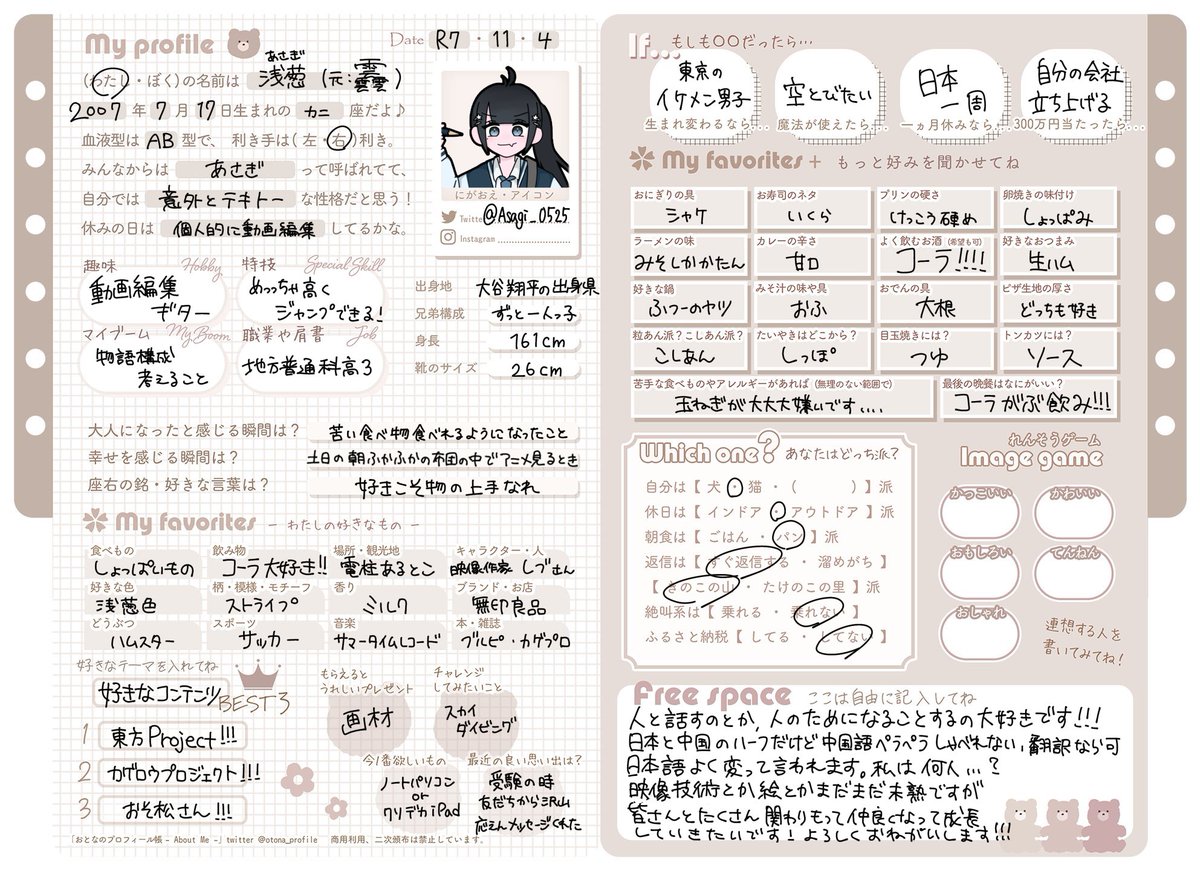 My profile
Date R7・11・4
あさぎ
(わたし・ぼく)の名前は 浅葱 (元:䨺)
2007 年 7 月 17 日生まれの カニ 座だよ♪
血液型は AB 型で、 利き手は(左・右)利き。
みんなからは あさぎ って呼ばれてて、
自分では 意外とテキトー な性格だと思う!
休みの日は 個人的に動画編集 してるかな。
にがおえ・アイコン
Twitter @Asagi_0525
Instagram
趣味 Hobby
動画編集
ギター
特技 Special Skill
めっちゃ高く
ジャンプできる!
マイブーム My Boom
物語構成
考えること
職業や肩書 Job
地方普通科高3
出身地 大谷翔平の出身県
兄弟構成 ずっと一人っ子
身長 161cm
靴のサイズ 26cm
大人になったと感じる瞬間は? 苦い食べ物食べれるようになったこと
幸せを感じる瞬間は? 土日の朝ふかふかの布団の中でアニメ見るとき
座右の銘・好きな言葉は? 好きこそ物の上手なれ
My favorites - わたしの好きなもの -
食べもの しょっぱいもの
飲み物 コーラ大好き!!
場所・観光地 電柱あるとこ
キャラクター・人 映像作家 しづさん
好きな色 浅葱色
柄・模様・モチーフ ストライプ
香り ミルク
ブランド・お店 無印良品
どうぶつ ハムスター
スポーツ サッカー
音楽 サマータイムレコード
本・雑誌 ブルピ・カゲプロ
好きなテーマを入れてね
好きなコンテンツ BEST3
1 東方Project!!!
2 カゲロウプロジェクト!!!
3 おそ松さん!!!
もらえると
うれしいプレゼント
画材
チャレンジ
してみたいこと
スカイ
ダイビング
今1番欲しいもの
ノートパソコン
or
クリデカiPad
最近の良い思い出は?
受験の時
友だちから沢山
応えんメッセージくれた
「おとなのプロフィール帳 - About Me -」twitter @otona_profile 商用利用、二次頒布は禁止しています。
If... もしも〇〇だったら…
東京の
イケメン男子
生まれ変わるなら…
空とびたい
魔法が使えたら…
日本
一周
一ヵ月休みなら…
自分の会社
立ち上げる
300万円当たったら…
My favorites + もっと好みを聞かせてね
おにぎりの具 シャケ
お寿司のネタ いくら
プリンの硬さ けっこう硬め
卵焼きの味付け しょっぱみ
ラーメンの味 みそしかかたん
カレーの辛さ 甘口
よく飲むお酒(希望も可) コーラ!!!!
好きなおつまみ 生ハム
好きな鍋 ふつーのヤツ
みそ汁の味や具 おふ
おでんの具 大根
ピザ生地の厚さ どっちも好き
粒あん派?こしあん派? こしあん
たいやきはどこから? しっぽ
目玉焼きには? つゆ
トンカツには? ソース
苦手な食べものやアレルギーがあれば (無理のない範囲で)
玉ねぎが大大大嫌いです....
最後の晩餐はなにがいい?
コーラがぶ飲み!!!
Which one? あなたはどっち派?
自分は【 犬 ・ 猫 ・ ( ) 】派
休日は【 インドア ・ アウトドア 】派
朝食は【 ごはん ・ パン 】派
返信は【 すぐ返信する ・ 溜めがち 】
【 きのこの山 ・ たけのこの里 】派
絶叫系は【 乗れる ・ 乗れない 】
ふるさと納税【 してる ・ してない 】
れんそうゲーム
Image game
かっこいい
かわいい
おもしろい
てんねん
おしゃれ
連想する人を
書いてみてね!
Free space ここは自由に記入してね
人と話すのとか,人のためになることするの大好きです!!!
日本と中国のハーフだけど中国語ペラペラしゃべれない,翻訳なら可
日本語よく変って言われます。私は何人...?
映像技術とか絵とかまだまだ未熟ですが
皆さんとたくさん関わりもって仲良くなって成長
していきたいです!よろしくおねがいします!!!